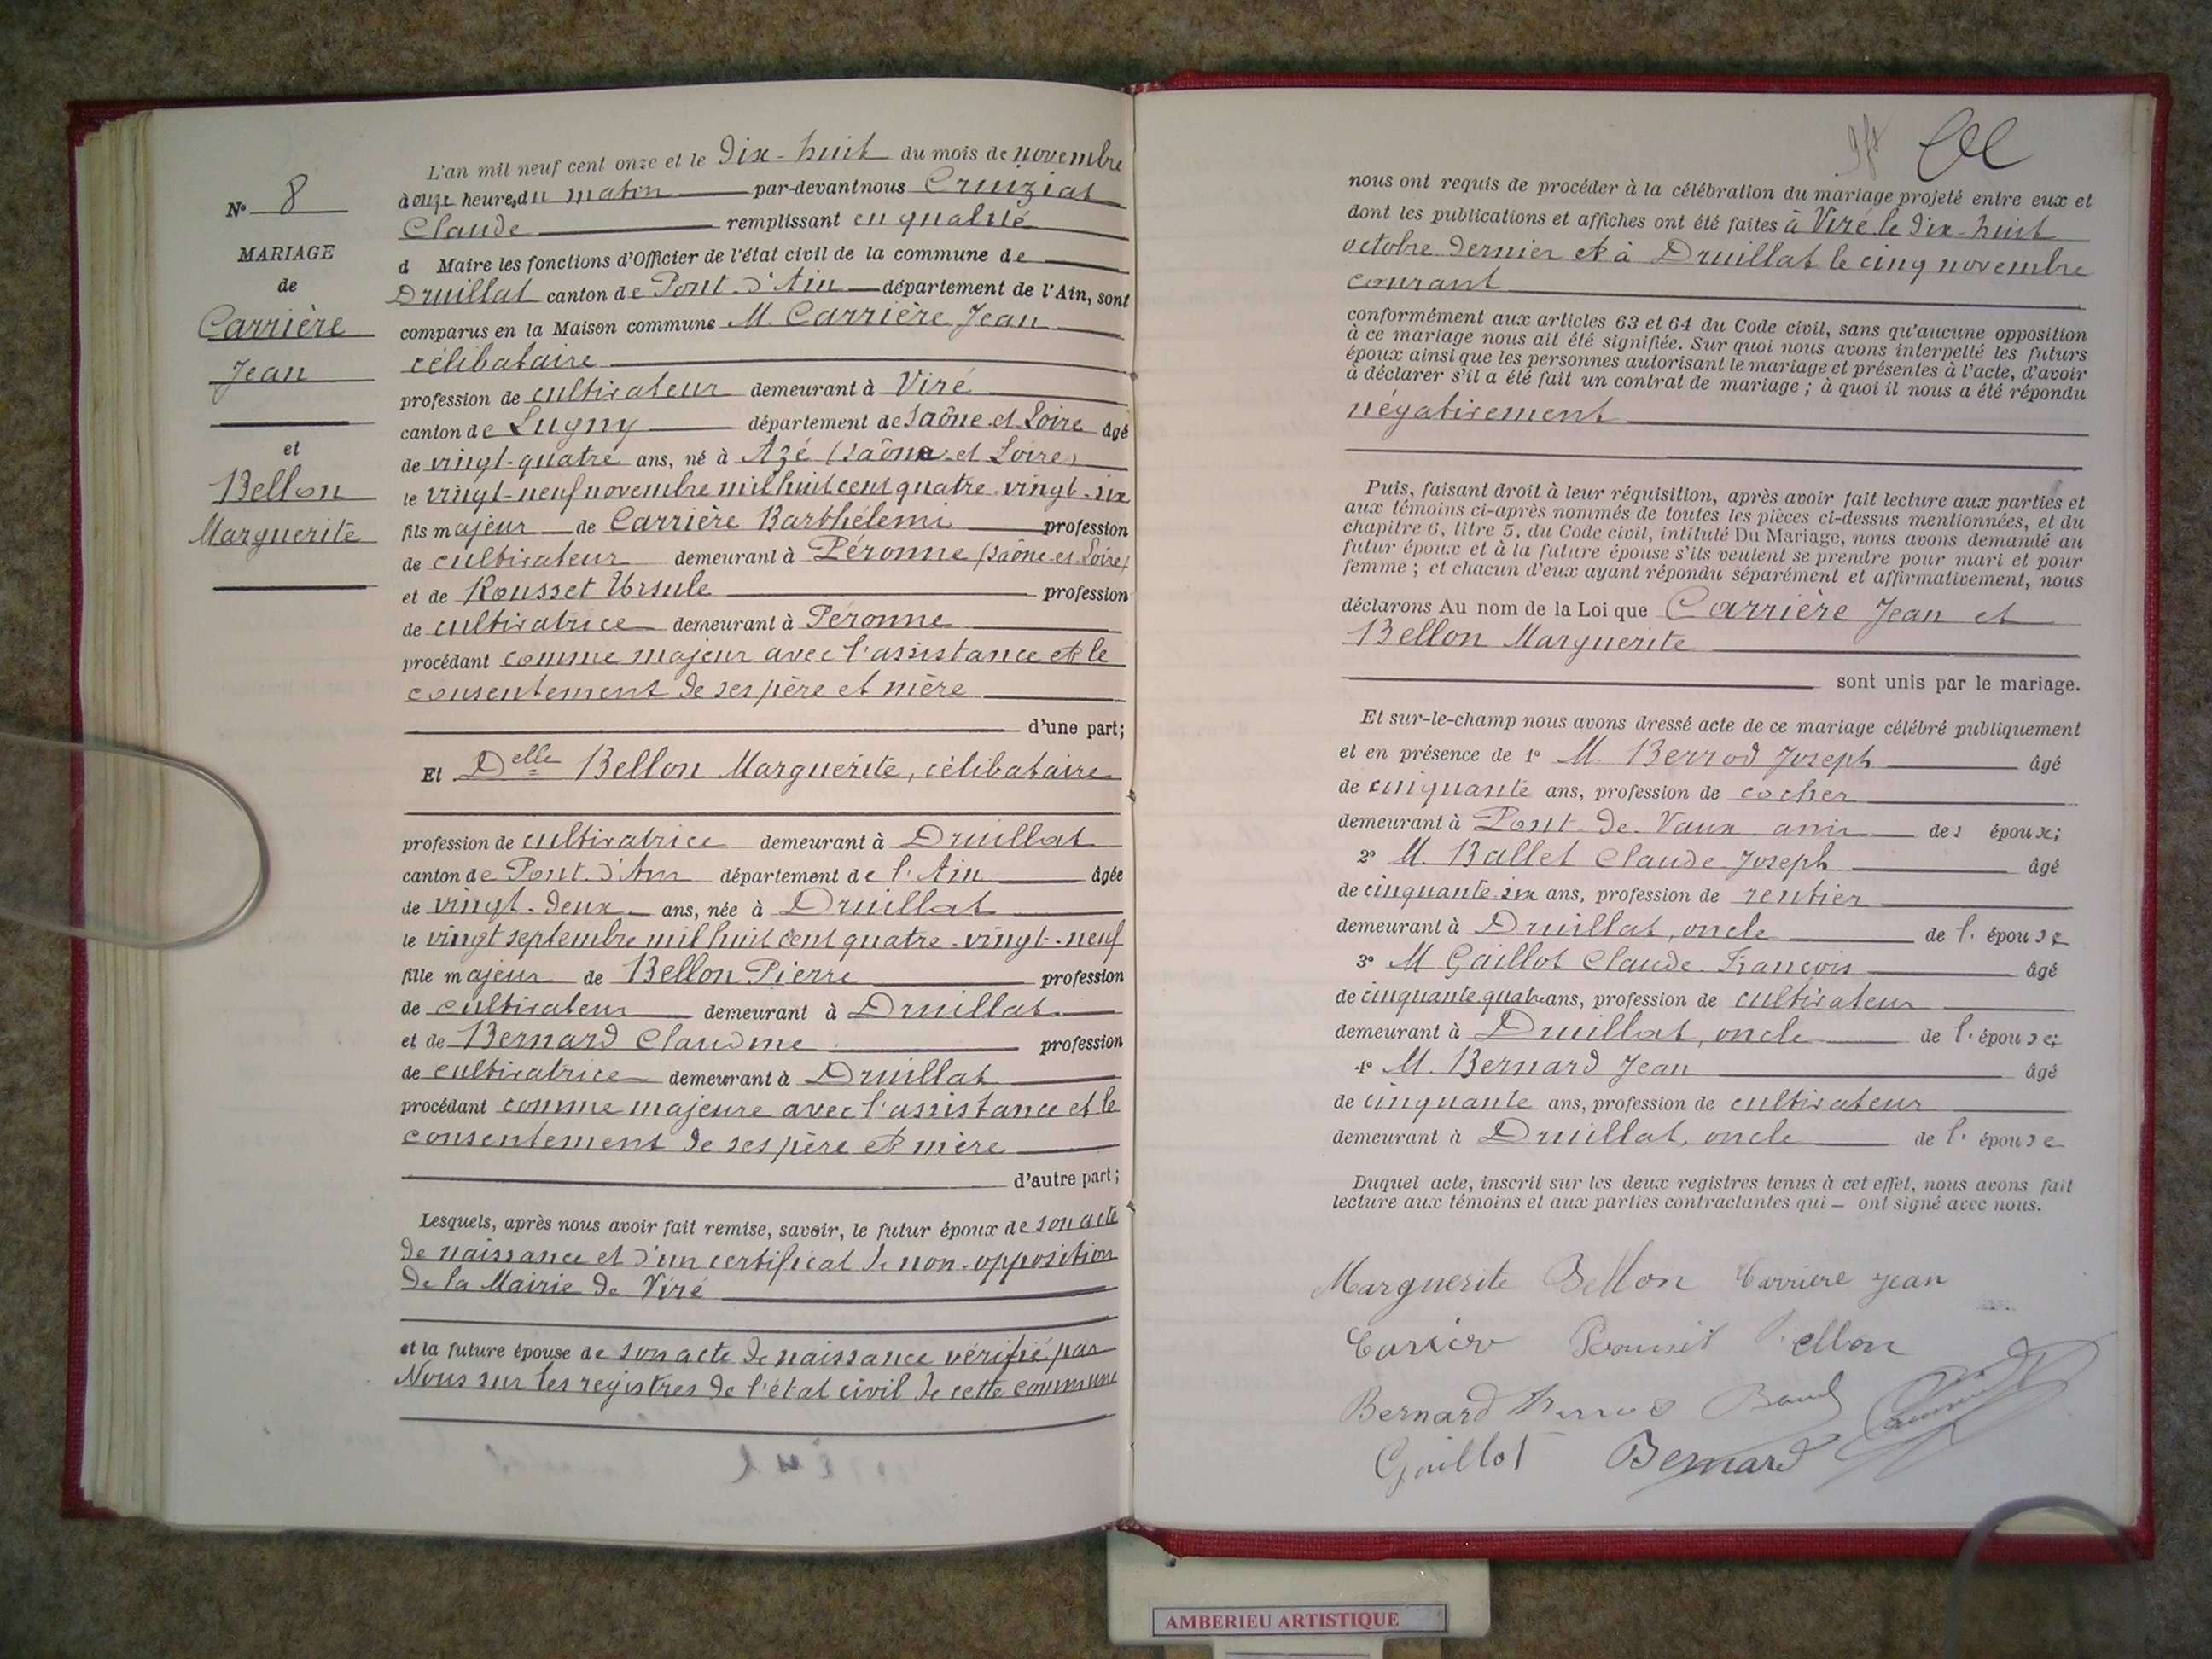 L'an mil neuf cent onze et le dix-huit du mois de novembre
à onze heures du matin par-devant nous Cruiziat
Claude remplissant en qualité
d Maire les fonctions d'Officier de l'état civil de la commune de
Druillat canton de Pont-d'Ain département de l'Ain, sont
comparus en la Maison commune M. Carrière Jean
célibataire
profession de cultivateur demeurant à Viré
canton de Lugny département de Saône-et-Loire âgé
de vingt-quatre ans, né à Azé (Saône-et-Loire)
le vingt-neuf novembre mil huit cent quatre-vingt-six
fils majeur de Carrière Barthélemi profession
de cultivateur demeurant à Péronne (Saône-et-Loire)
et de Rousset Ursule profession
de cultivatrice demeurant à Péronne
procédant comme majeur avec l'assistance et le
consentement de ses père et mère
d'une part;
Et Delle Bellon Marguerite, célibataire
profession de cultivatrice demeurant à Druillat
canton de Pont-d'Ain département de l'Ain âgée
de vingt-deux ans, née à Druillat
le vingt septembre mil huit cent quatre-vingt-neuf
fille majeur de Bellon Pierre profession
de cultivateur demeurant à Druillat
et de Bernard Claudine profession
de cultivatrice demeurant à Druillat
procédant comme majeure avec l'assistance et le
consentement de ses père et mère
d'autre part;
Lesquels, après nous avoir fait remise, savoir, le futur époux de son acte
de naissance et d'un certificat de non-opposition
de la Mairie de Viré
et la future épouse de son acte de naissance vérifié par
Nous sur les registres de l'état civil de cette commune
N° 8
MARIAGE
de
Carrière
Jean
et
Bellon
Marguerite
nous ont requis de procéder à la célébration du mariage projeté entre eux et
dont les publications et affiches ont été faites à Viré le dix-huit
octobre dernier et à Druillat le cinq novembre
courant
conformément aux articles 63 et 64 du Code civil, sans qu'aucune opposition
à ce mariage nous ait été signifiée. Sur quoi nous avons interpellé les futurs
époux ainsi que les personnes autorisant le mariage et présentes à l'acte, d'avoir
à déclarer s'il a été fait un contrat de mariage ; à quoi il nous a été répondu
négativement
Puis, faisant droit à leur réquisition, après avoir fait lecture aux parties et
aux témoins ci-après nommés de toutes les pièces ci-dessus mentionnées, et du
chapitre 6, titre 5, du Code civil, intitulé Du Mariage, nous avons demandé au
futur époux et à la future épouse s'ils veulent se prendre pour mari et pour
femme ; et chacun d'eux ayant répondu séparément et affirmativement, nous
déclarons Au nom de la Loi que Carrière Jean et
Bellon Marguerite
sont unis par le mariage.
Et sur-le-champ nous avons dressé acte de ce mariage célébré publiquement
et en présence de 1° M. Berrod Joseph âgé
de cinquante ans, profession de cocher
demeurant à Pont-de-Vaux ami des époux;
2° M. Ballet Claude Joseph âgé
de cinquante-six ans, profession de rentier
demeurant à Druillat, oncle de l'épouse
3° M Gaillot Claude-François âgé
de cinquante quatre ans, profession de cultivateur
demeurant à Druillat, oncle de l'épouse;
4° M. Bernard Jean âgé
de cinquante ans, profession de cultivateur
demeurant à Druillat, oncle de l'épouse
Duquel acte, inscrit sur les deux registres tenus à cet effet, nous avons fait
lecture aux témoins et aux parties contractantes qui — ont signé avec nous.
Marguerite Bellon Carrière Jean
Bellon
Bernard
Gaillot Bernard
AMBERIEU ARTISTIQUE